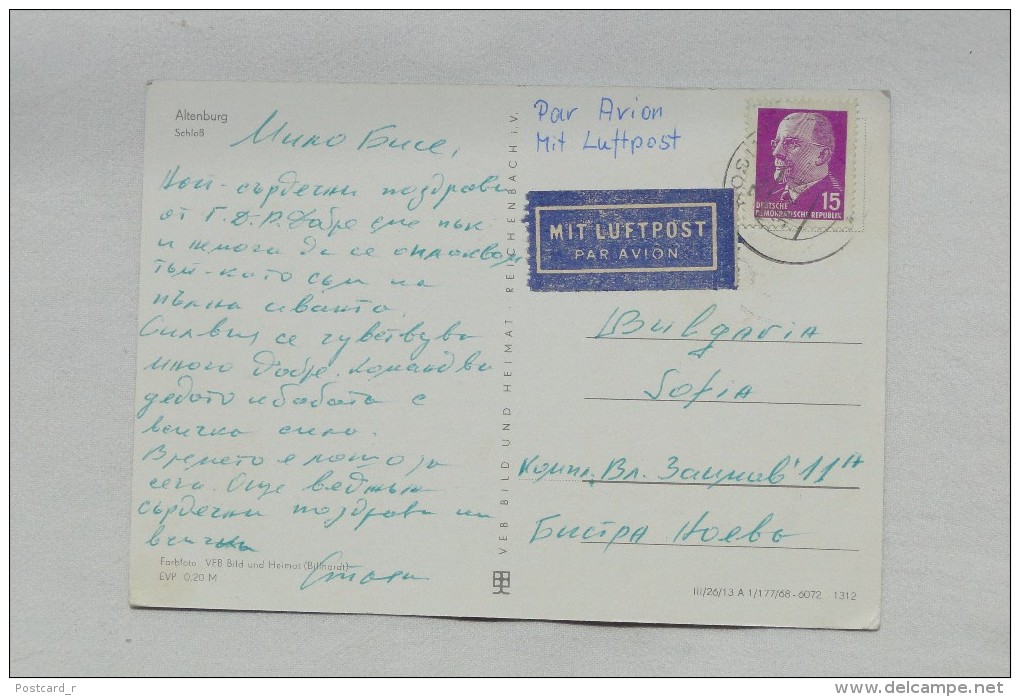 Altenburg
Schloß
Мило Бисе,
Най-сърдечни поздрави
от Г.Д.Р. Добре сме пък
и не мога да се оплаквам
тъй-като съм на
пълна
Силвия се чувствува
много добре. Командва
дедото и бабата с
всичка сила.
Времето е лошо за
сега. Още веднъж
сърдечни поздрави на
всички
Farbfoto: VEB Bild und Heimat (Billhardt)
EVP 0,20 M
VEB BILD UND HEIMAT REICHENBACH i. V.
Par Avion
Mit Luftpost
MIT LUFTPOST
PAR AVION
15
DEUTSCHE
DEMOKRATISCHE REPUBLIK
Bulgaria
Sofia
Компл. Вл. Заимов 11А
Бистра Ноева
III/26/13 A 1/177/68 - 6072 1312
Postcard_r
www.delcampe.net